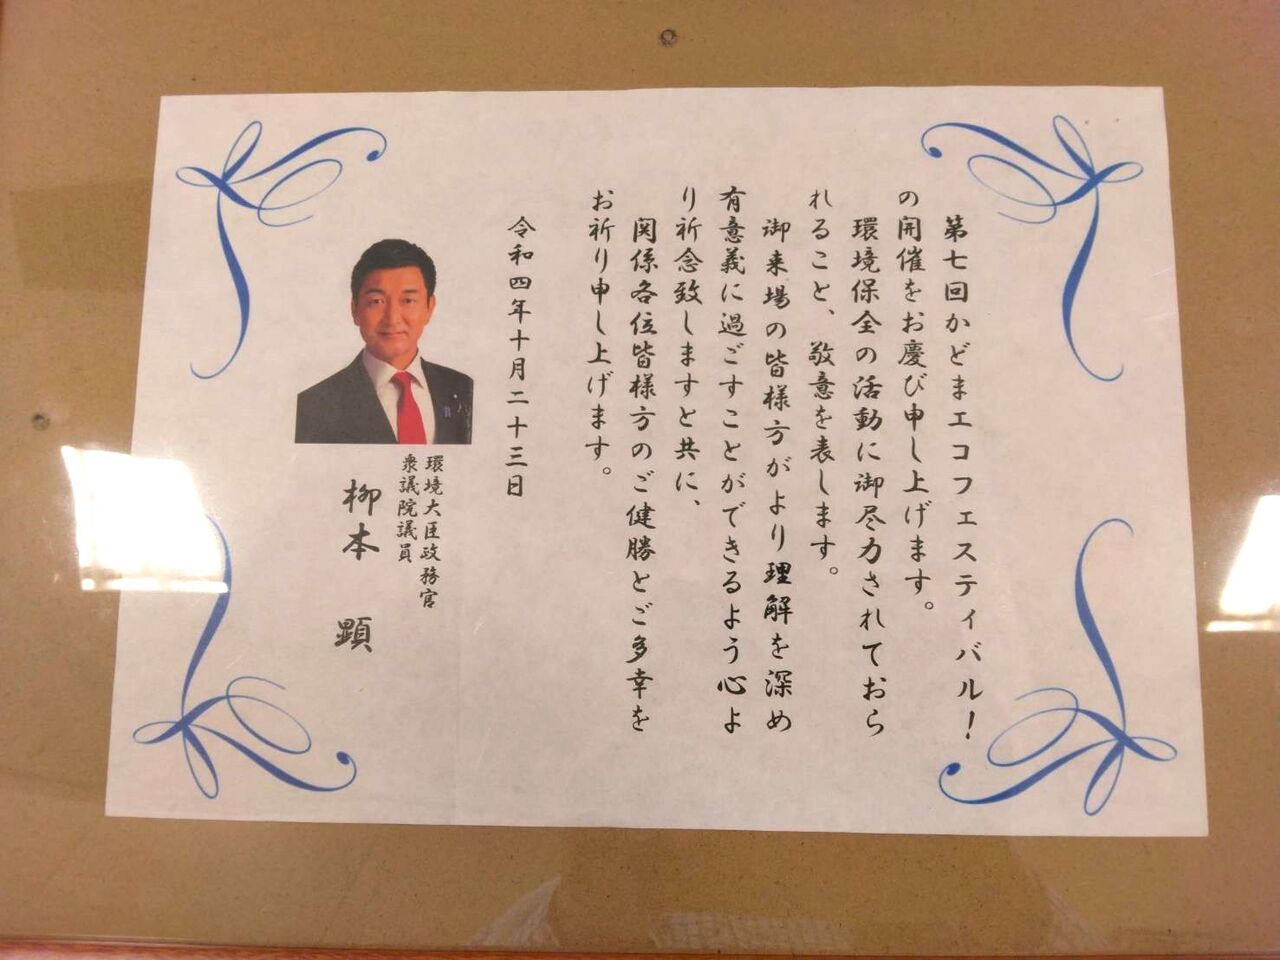 第七回かどまエコフェスティバル！
の開催をお慶び申し上げます。
環境保全の活動に御尽力されておら
れること、敬意を表します。
御来場の皆様方がより理解を深め
有意義に過ごすことができるよう心よ
り祈念致しますと共に、
関係各位皆様方のご健勝とご多幸を
お祈り申し上げます。
令和四年十月二十三日
環境大臣政務官
衆議院議員
柳本　顕